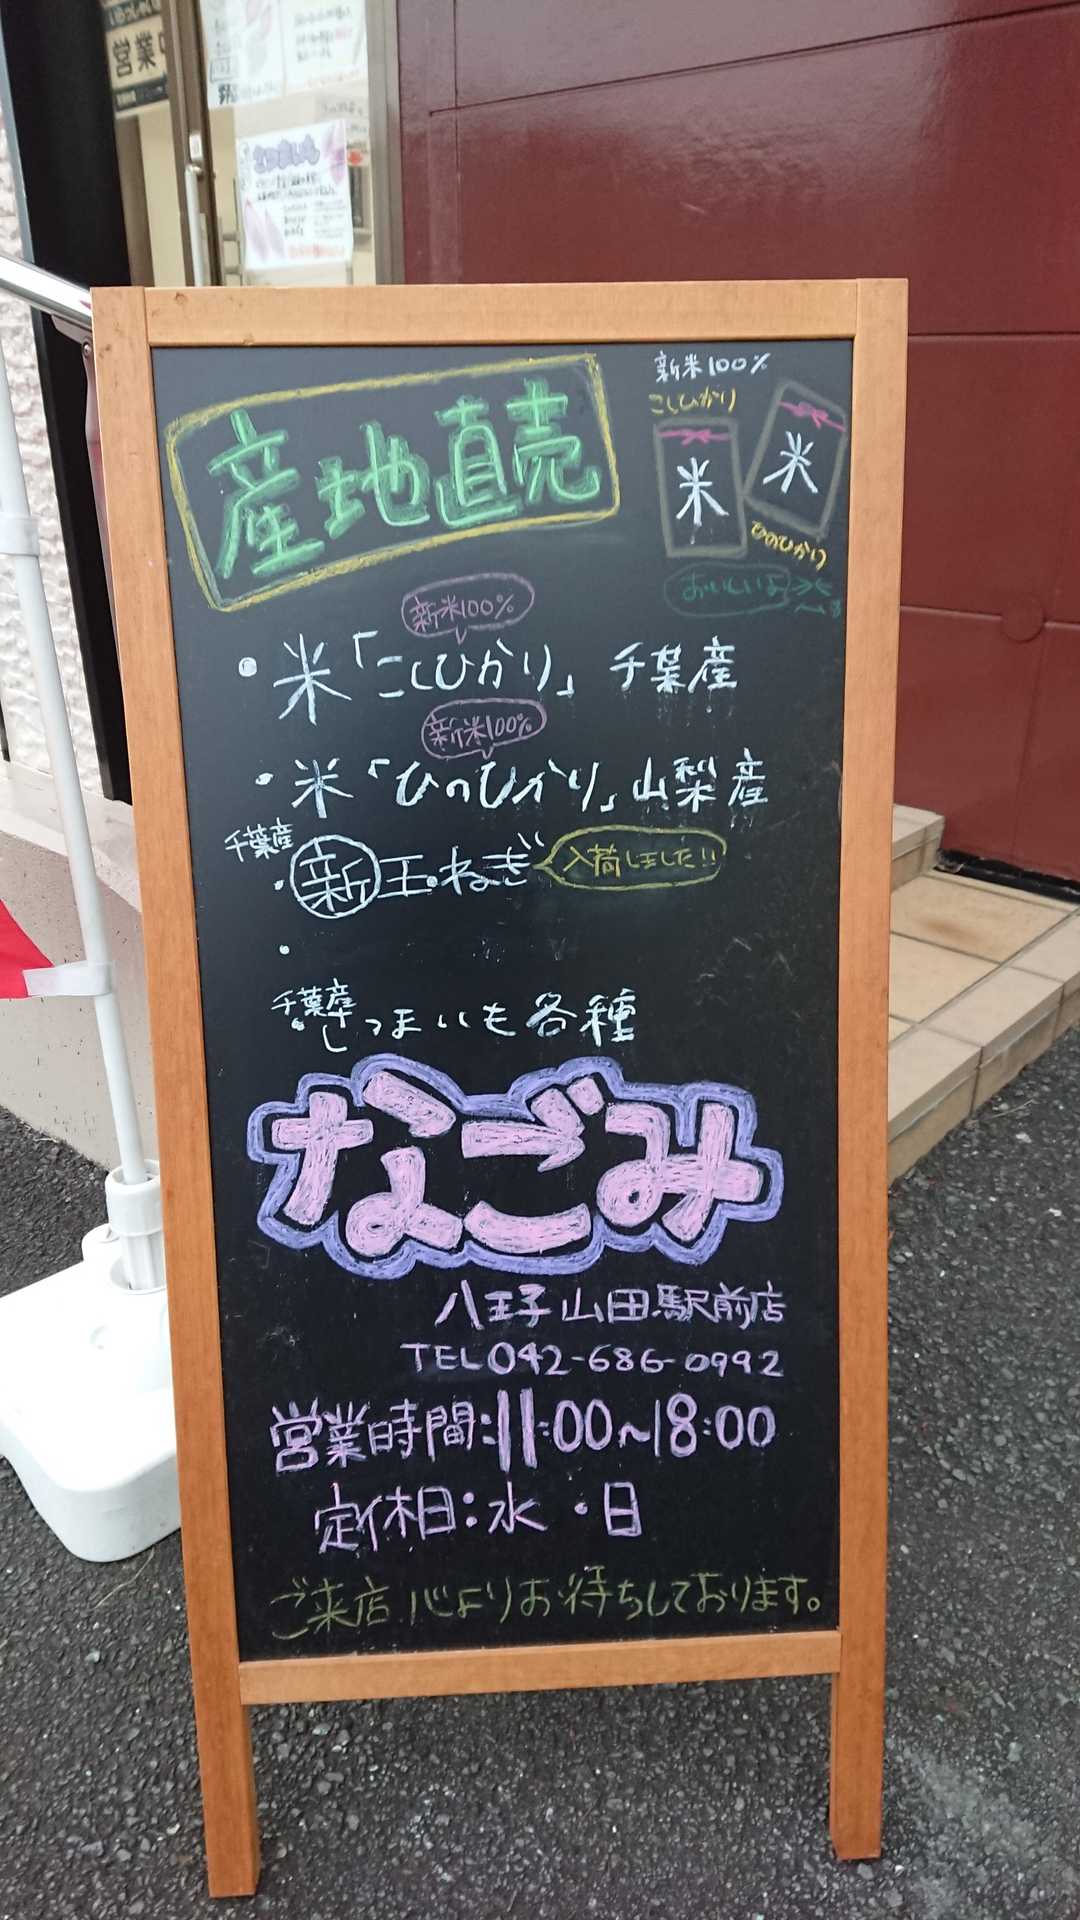 営業中
さつまいも
産地直売
新米100%
こしひかり
米
米
ひのひかり
おいしいよ
新米100%
・米「こしひかり」千葉産
新米100%
・米「ひのひかり」山梨産
千葉産
・新玉ねぎ 入荷しました!!
・
千葉産
・さつまいも各種
なごみ
八王子山田駅前店
TEL042-686-0992
営業時間:11:00~18:00
定休日:水・日
ご来店心よりお待ちしております。